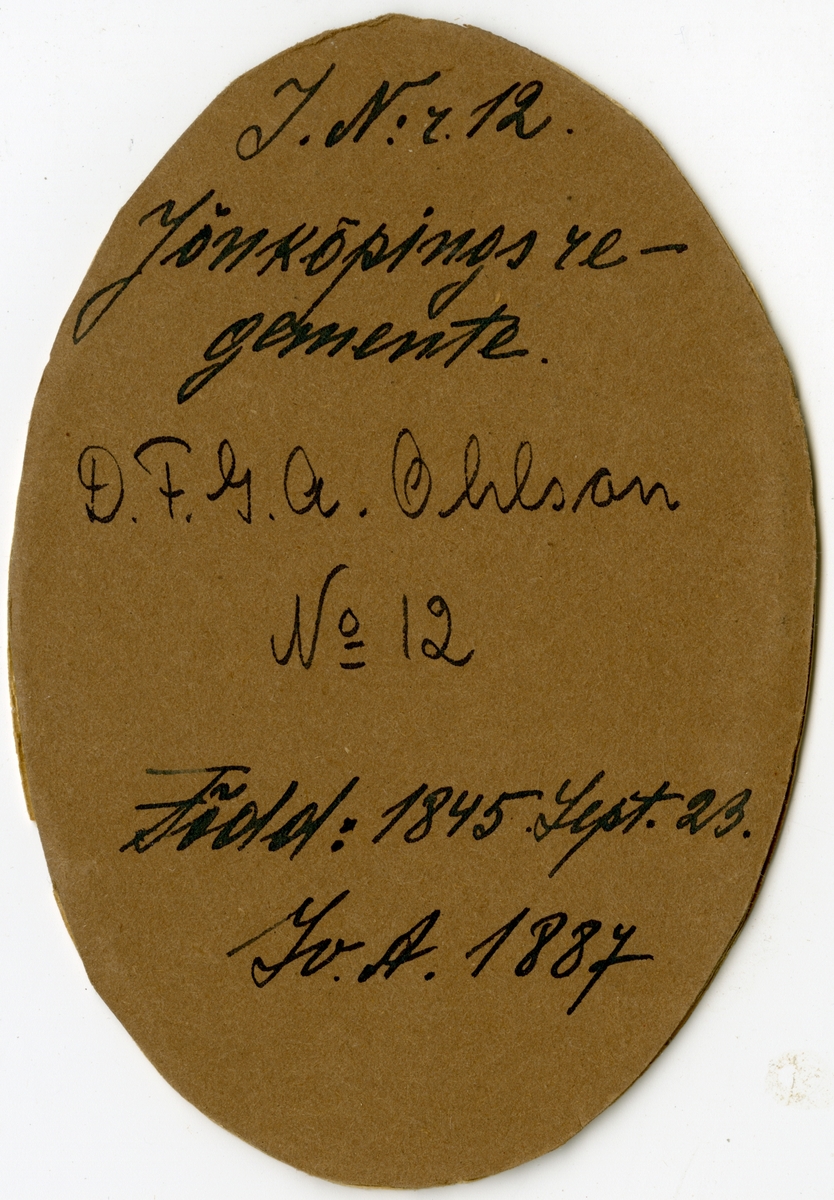 I. N:r. 12.
Jönköpings re-
gemente.
D. F. G. A. Ohlson
No 12
Född: 1845. Sept. 23.
Iv. A. 1887